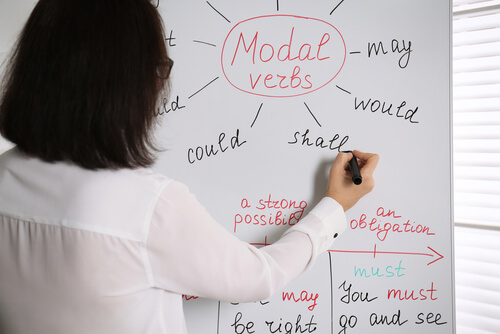 Modal
verbs
may
would
could
shall
a strong
possibility
an
obligation
must
may
be right
You must
go and see